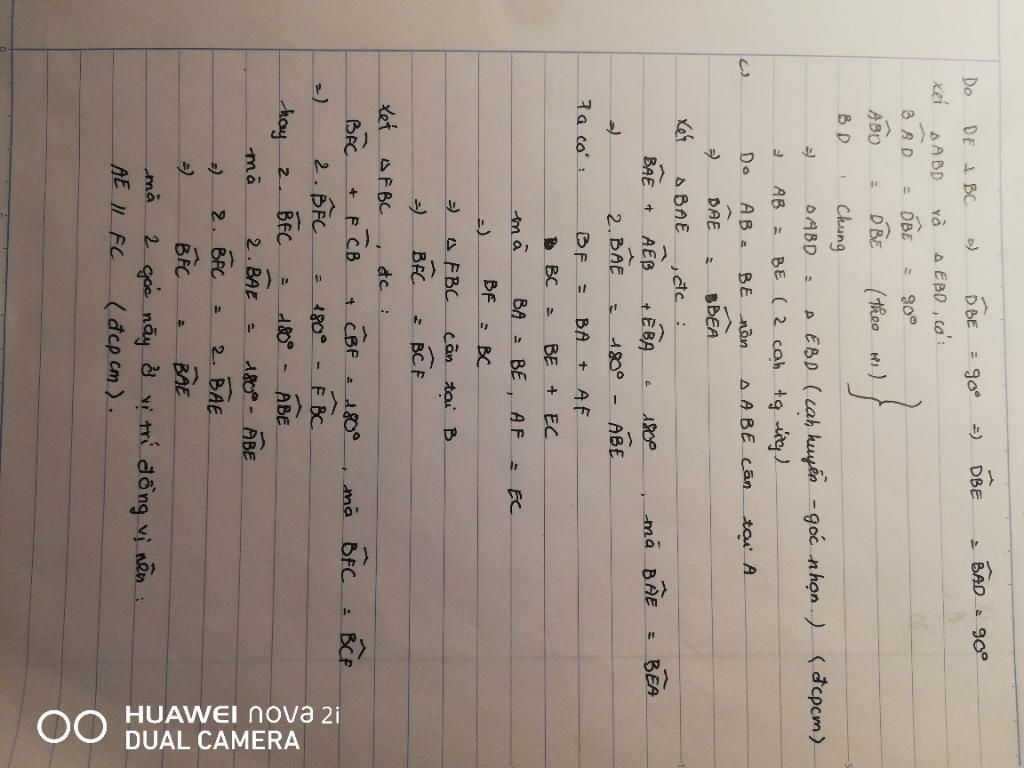 Do DE ⊥ BC => D̂BE = 90° => D̂BE = B̂AD = 90°
Xét △ABD và △EBD, có:
BÂD = D̂BE = 90°
ÂBD = D̂BE (theo H1)
BD : chung
=> △ABD = △EBD (cạh huyền - góc nhọn.) (đcpcm)
=> AB = BE (2 cạh tg ứng)
c) Do AB = BE nên △ABE cân tại A
=> B̂AE = B̂EA
Xét △BAE, đc:
B̂AE + ÂEB + ÊBA = 180°, mà B̂AE = B̂EA
=> 2.B̂AE = 180° - ÂBE
Ta có: BF = BA + AF
BC = BE + EC
mà BA = BE, AF = EC
=> BF = BC
=> △FBC cân tại B
=> B̂FC = B̂CF
Xét △FBC, đc:
B̂FC + FĈB + ĈBF = 180°, mà B̂FC = B̂CF
=> 2.B̂FC = 180° - F̂BC
hay 2.B̂FC = 180° - ÂBE
mà 2.B̂AE = 180° - ÂBE
=> 2.B̂FC = 2.B̂AE
=> B̂FC = B̂AE
mà 2 góc này ở vị trí đồng vị nên:
AE // FC (đcpcm).
HUAWEI nova 2i
DUAL CAMERA